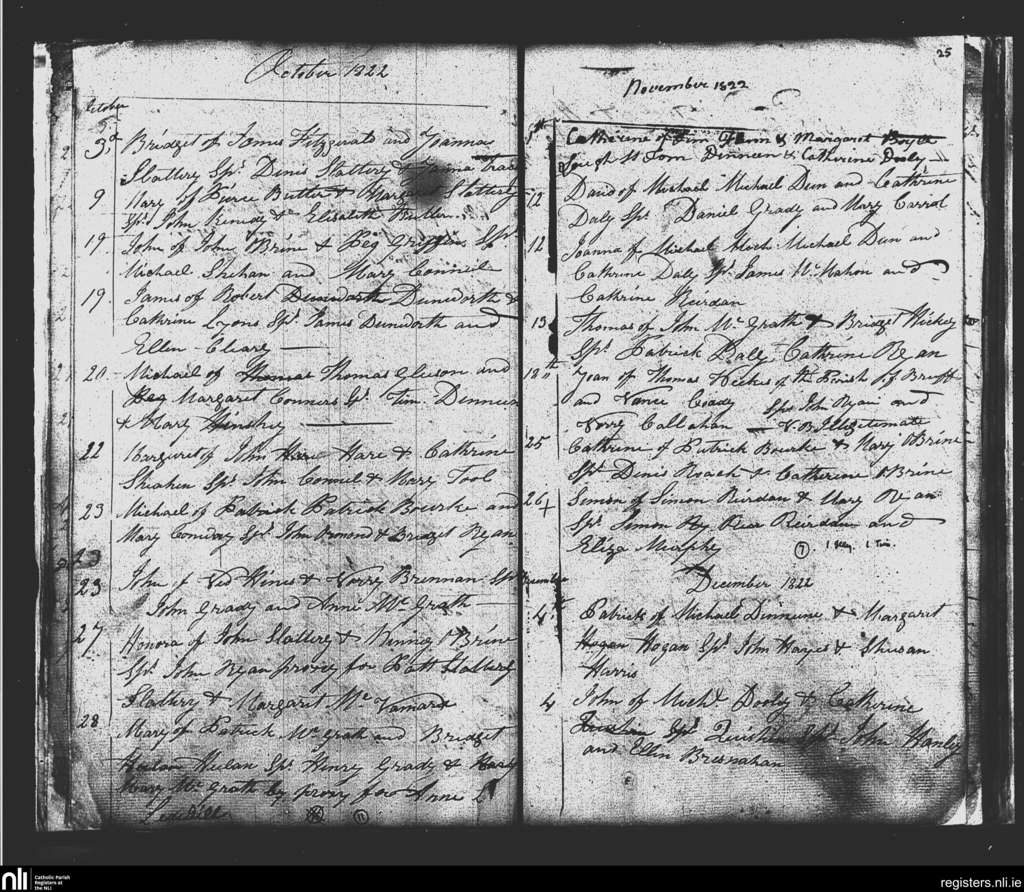 October 1822
October
3d Bridget of James Fitzgerald and Joanna
Slattery Sps. Denis Slattery &
9 Mary of Pierce Butler & Slattery
Sps. John Kenedy & Elizabeth Butler
19 John of John OBrine & Peg Griffin Sps
Michael Shehan and Mary Conneil
19. James of Robert Dunworth Dunworth &
Cathrine Lyons Sps. James Dunworth and
Ellen Cleary
20. Michael of Thomas Thomas Gleeson and
Peg Margaret Conners Sps. Tim. Dinneen
& Mary
22 Margaret of John Hare Hare & Cathrine
Sheahen Sps. John Connel & Mary Tool
23 Michael of Patrick Patrick Bourke and
Mary Sps. John & Bridget Ryan
23
23 John of Ned Hines & Norry Brennan Sps
John Grady and Anne Mc Grath
27 Honora of John Slattery & OBrine
Sps. John Ryan proxy for Patt Slattery
Slattery & Margaret Mc
28 Mary of Patrick Mc Grath and Bridget
Hulan Sps. Henry Grady & Mary
Mary Mc Grath by proxy for Anne
11
25
November 1822
Catherine of Tim & Margaret
Tom Dinneen & Catherine Dooly
12 David of Michael Michael Dun and Cathrine
Daly Sps. Daniel Grady and Mary Carrol
12 Joanna of Michael Michael Dun and
Cathrine Daly Sps. James Mc Mahon and
Cathrine Reirdan
13 Thomas of John Mc Grath & Bridget Hickey
Sps. Patrick Daly Cathrine Ryan
18th Joan of Thomas of the Parish of Bruff
and Nance Coady Sps. John Ryan and
Norry Callahan — N.B. Illegitimate
25 Catherine of Patrick Bourke & Mary OBrine
Sps. Denis Roach & Catherine OBrine
26 Simon of Simon Reirdan & Mary Ryan
Sps. Simon Reirdan and
Eliza Murphy
7
December
December 1822
4th Patrick of Michael Dinneen & Margaret
Hogan Hogan Sps. John Hayes & Shusan
Harris
4 John of Michl. Dooly & Catherine
Sps. John Hanly
and Ellen Bresnahan
nli
Catholic Parish
Registers at
the NLI
registers.nli.ie